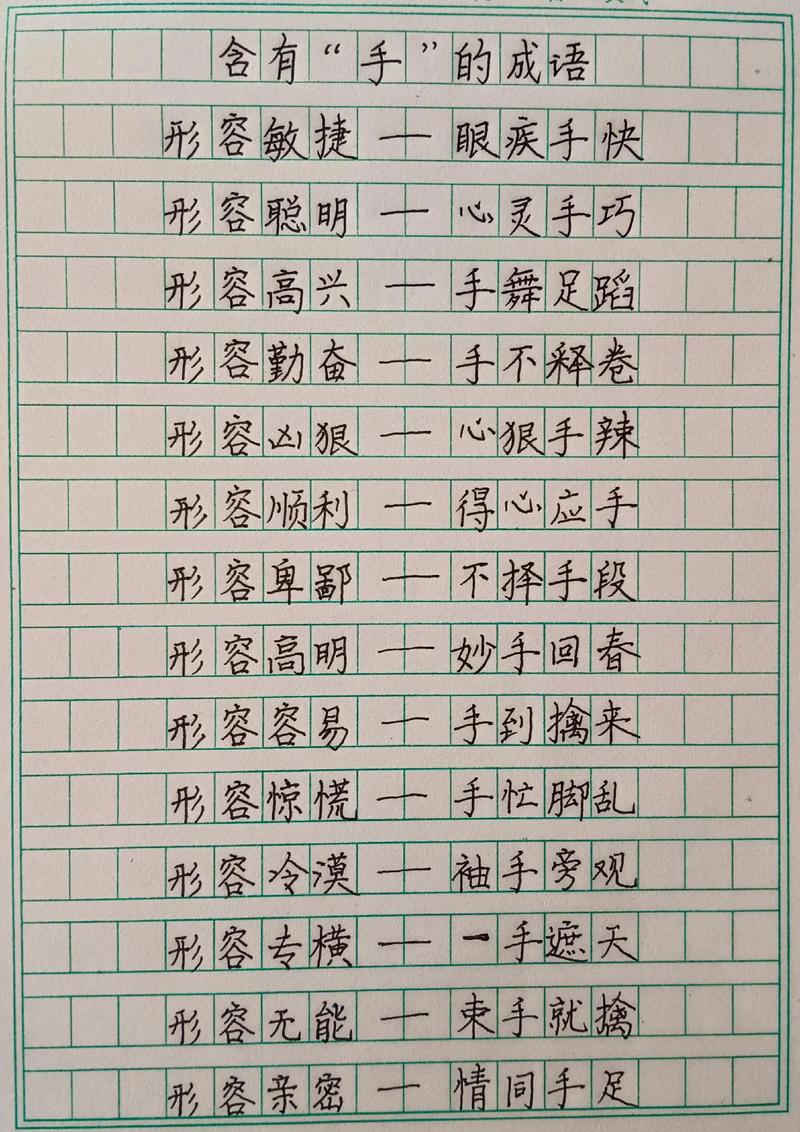 含有“手”的成语
形容敏捷——眼疾手快
形容聪明——心灵手巧
形容高兴——手舞足蹈
形容勤奋——手不释卷
形容凶狠——心狠手辣
形容顺利——得心应手
形容卑鄙——不择手段
形容高明——妙手回春
形容容易——手到擒来
形容惊慌——手忙脚乱
形容冷漠——袖手旁观
形容专横——一手遮天
形容无能——束手就擒
形容亲密——情同手足